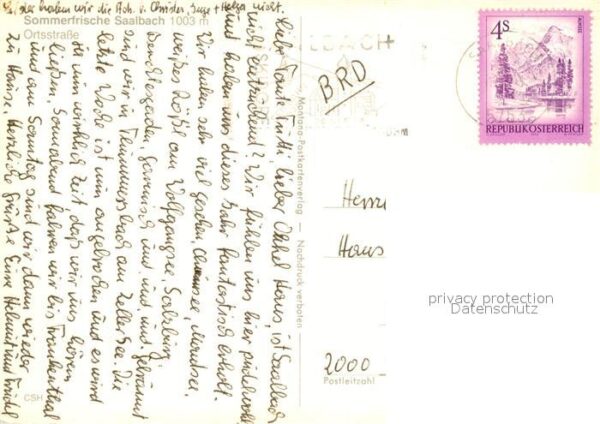 Leider haben wir die Adr. v. Christa, Suse + Helga nicht.
Sommerfrische Saalbach 1003 m
Ortsstraße
Liebe Tante Trudl, lieber Onkel Hans, ist Saalbach
nicht bezaubernd? Wir fühlen uns hier pudelwohl
und haben uns dieses Jahr fantastisch erholt.
Wir haben sehr viel gesehen, Chiemsee, Mondsee,
weißes Rößl am Wolfgangsee, Salzburg,
Berchtesgaden, gewesen und und und. Gebräunt
sind wir in Thumersbach am Zeller See. Die
letzte Woche ist nun angebrochen und es wird
nun wirklich Zeit daß wir uns hören
ließen. Sonnabend fahren wir bis Frankenthal
und am Sonntag sind wir dann wieder
zu Hause. Herzliche Grüße Eure Helmut und Trudel
CSH
Montana-Postkartenverlag — Nachdruck verboten
BRD
4 S
REPUBLIK ÖSTERREICH
Herrn
Hans
2000
Postleitzahl
privacy protection
Datenschutz